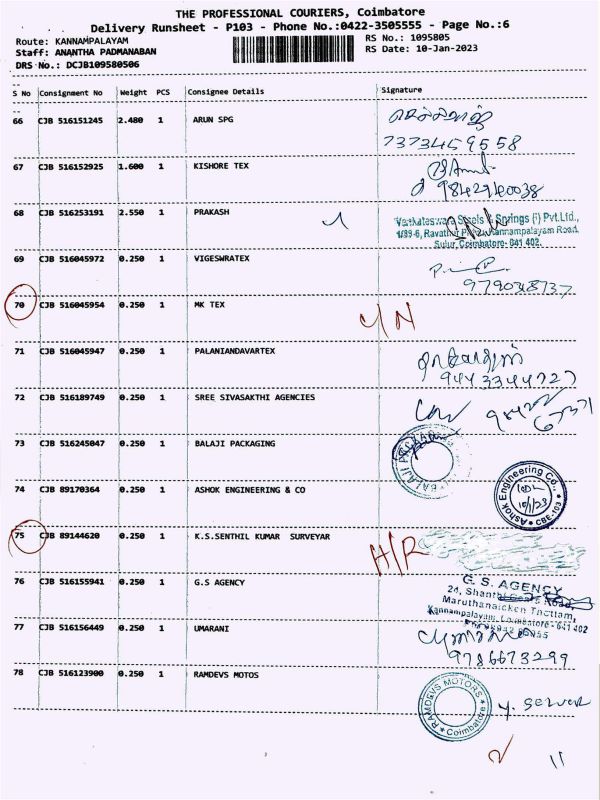 THE PROFESSIONAL COURIERS, Coimbatore
Delivery Runsheet - P103 - Phone No.:0422-3505555 - Page No.:6
Route: KANNAMPALAYAM
RS No.: 1095805
Staff: ANANTHA PADMANABAN
RS Date: 10-Jan-2023
DRS No.: DCJB109580506
S No Consignment No Weight PCS Consignee Details Signature
66 CJB 516151245 2.480 1 ARUN SPG
7373459558
67 CJB 516152925 1.600 1 KISHORE TEX
9842940038
68 CJB 516253191 2.550 1 PRAKASH
Venkateswara Steels & Springs (I) Pvt.Ltd.,
Kannampalayam Road,
Sulur, Coimbatore- 641 402.
69 CJB 516045972 0.250 1 VIGESWRATEX
70 CJB 516045954 0.250 1 MK TEX
71 CJB 516045947 0.250 1 PALANIANDAVARTEX
9443344727
72 CJB 516189749 0.250 1 SREE SIVASAKTHI AGENCIES
73 CJB 516245047 0.250 1 BALAJI PACKAGING
74 CJB 89170364 0.250 1 ASHOK ENGINEERING & CO
Ashok Engineering Co.,
10/1/23
CBE-103
75 CJB 89144620 0.250 1 K.S.SENTHIL KUMAR SURVEYAR
H/R
76 CJB 516155941 0.250 1 G.S AGENCY
G. S. AGENCY
Maruthanaicken Thottam,
Kannampalayam, Coimbatore - 641 402
77 CJB 516156449 0.250 1 UMARANI
9786673299
78 CJB 516123900 0.250 1 RAMDEVS MOTOS
RAMDEVS MOTORS
Coimbatore